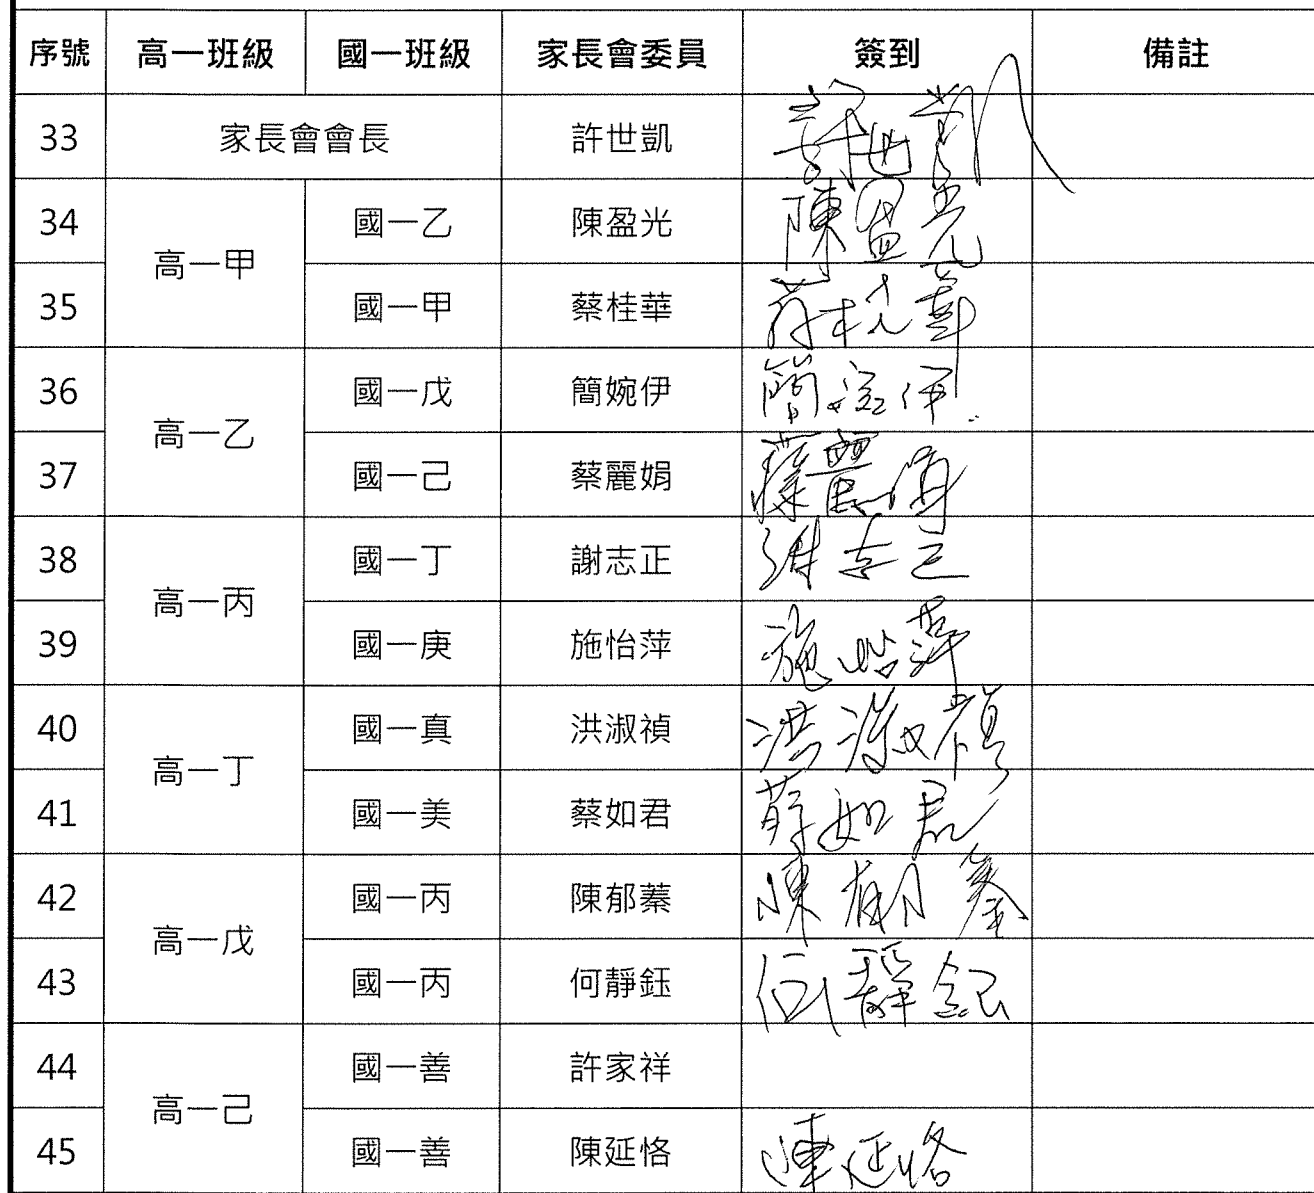 序號 高一班級 國一班級 家長會委員 簽到 備註
33 家長會會長 許世凱 許世凱
34 高一甲 國一乙 陳盈光 陳盈光
35 國一甲 蔡桂華
36 高一乙 國一戊 簡婉伊 簡婉伊
37 國一己 蔡麗娟 蔡麗娟
38 高一丙 國一丁 謝志正 謝志正
39 國一庚 施怡萍 施怡萍
40 高一丁 國一真 洪淑禎 洪淑禎
41 國一美 蔡如君 蔡如君
42 高一戊 國一丙 陳郁蓁 陳郁蓁
43 國一丙 何靜鈺 何靜鈺
44 高一己 國一善 許家祥
45 國一善 陳延恪 陳延恪